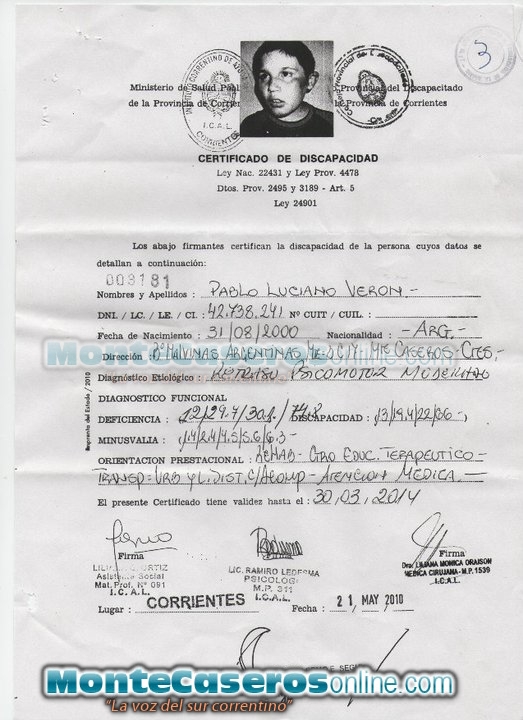 3
Ministerio de Salud Púb
Provincial del Discapacitado
de la Provincia de Corrien
la Provincia de Corrientes
I.C.A.L.
CORRIENTES
CERTIFICADO DE DISCAPACIDAD
Ley Nac. 22431 y Ley Prov. 4478
Dtos. Prov. 2495 y 3189 - Art. 5
Ley 24901
Los abajo firmantes certifican la discapacidad de la persona cuyos datos se
detallan a continuación:
003181
Nombres y Apellidos : PABLO LUCIANO VERON.-
DNI. / LC. / LE. / CI. : 42.738.241 Nº CUIT / CUIL. :
Fecha de Nacimiento : 31/08/2000 Nacionalidad : -ARG.-
Dirección : Bº MALVINAS ARGENTINAS MTE CASEROS-CTES.-
Diagnóstico Etiológico : RETRASO PSICOMOTOR MODERADO
Imprenta del Estado / 2010
DIAGNOSTICO FUNCIONAL
DEFICIENCIA : DISCAPACIDAD :
MINUSVALIA :
ORIENTACION PRESTACIONAL : REHAB- CTRO EDUC. TERAPEUTICO-
TRANSP: URB Y L. DIST. C/ACOMP- ATENCION MEDICA.-
El presente Certificado tiene validez hasta el : 30.03.2014
Firma
ORTIZ
Asistente Social
Mat. Prof. Nº 091
I.C.A.L.
LIC. RAMIRO LEDESMA
PSICOLOG
M.P. 311
I.C.A.L.
Firma
Dra. LILIANA MONICA ORAISON
MEDICA CIRUJANA - M.P. 1539
I.C.A.L.
Lugar : CORRIENTES Fecha : 21 MAY 2010
MonteCaserosonline.com
"La voz del sur correntino"